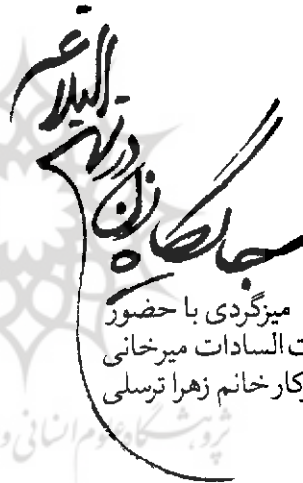 جایگاه زن در نهج البلاغه
میزگردی با حضور
ت السادات میرخانی
رکار خانم زهرا ترسلی
پژوهشگاه علوم انسانی و